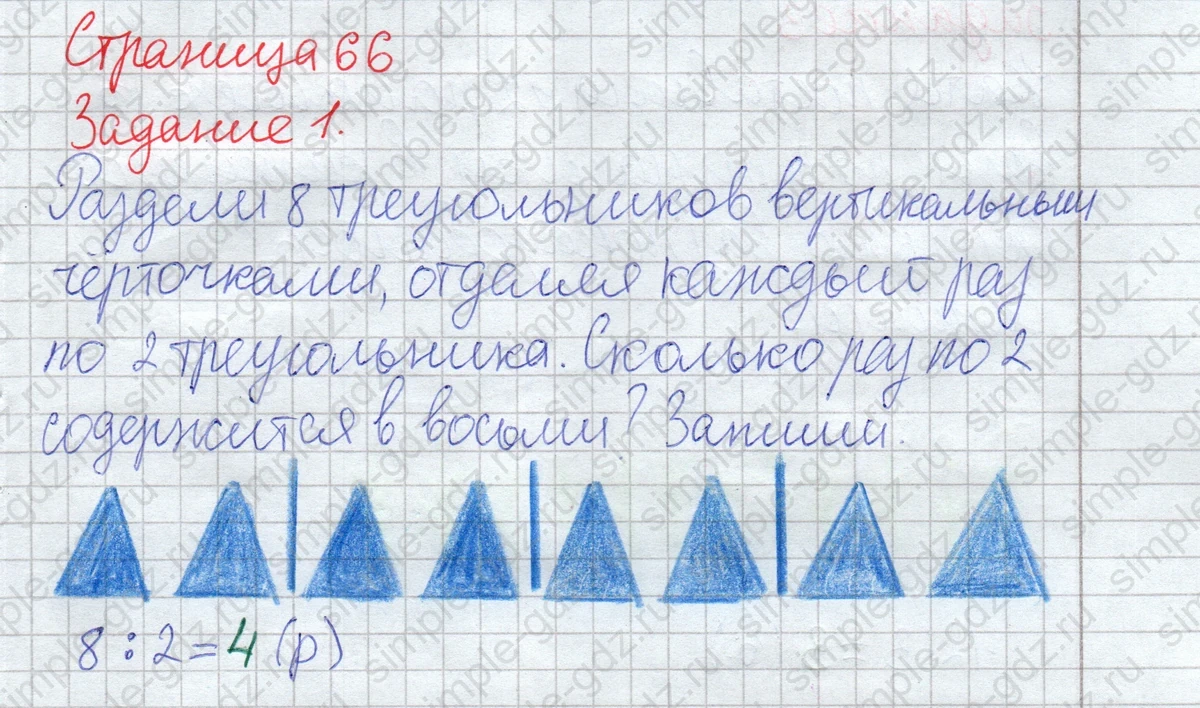 Страница 66
Задание 1.
Раздели 8 треугольников вертикальными
чёрточками, отделяя каждый раз
по 2 треугольника. Сколько раз по 2
содержится в восьми? Запиши.
8 : 2 = 4 (р)
simple-gdz.ru